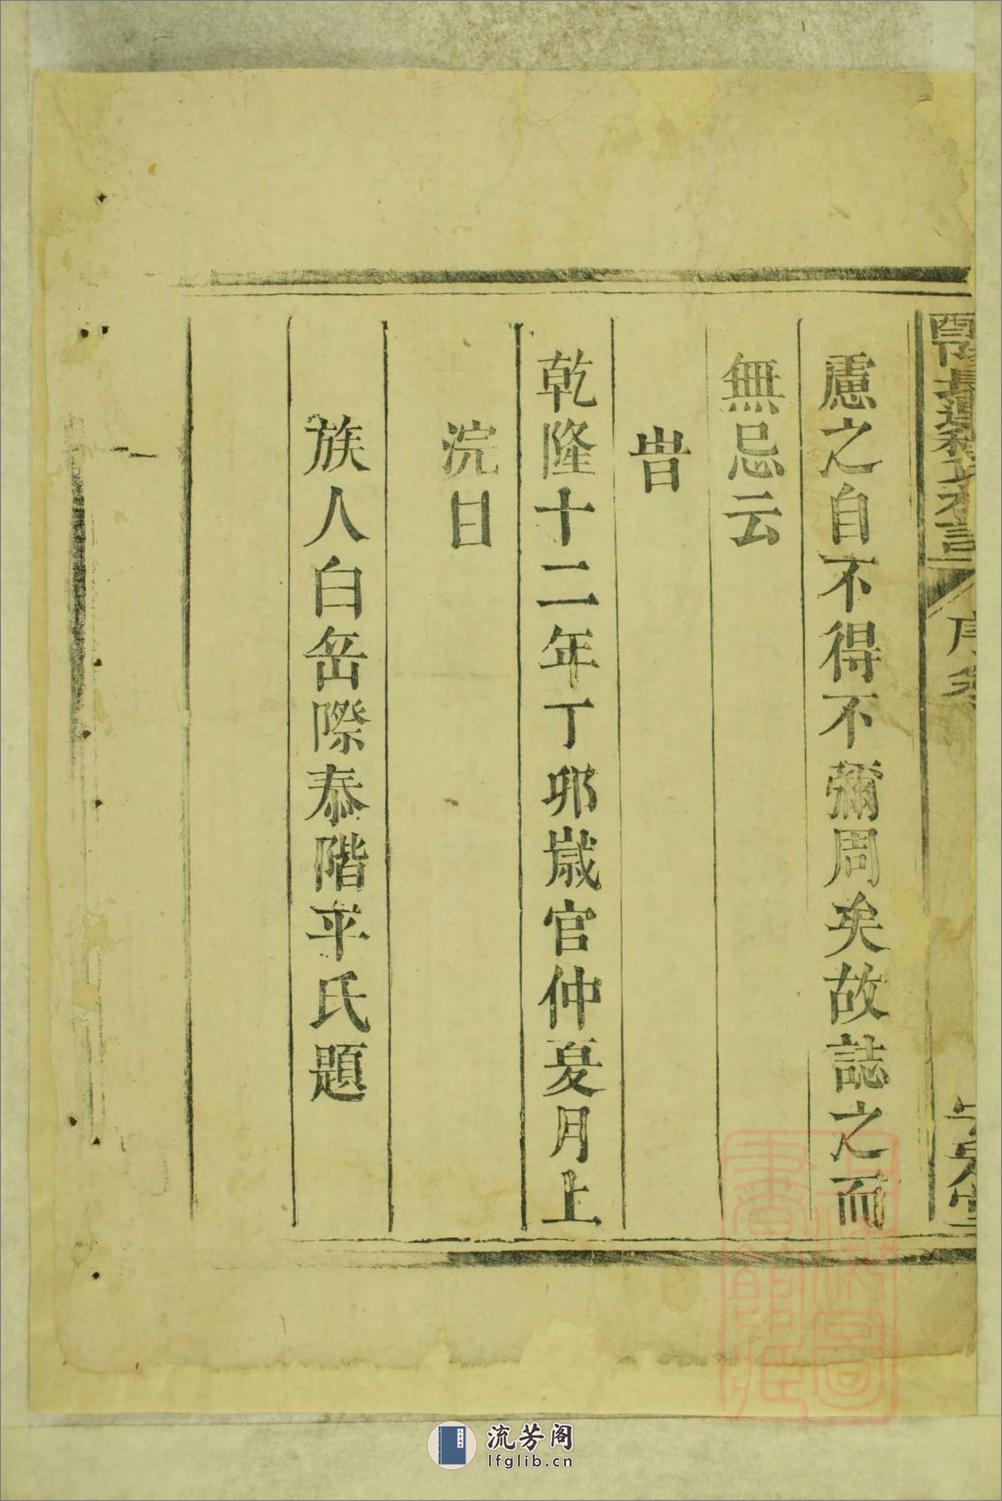 慮之自不得不彌周矣故誌之而
無忌云
旹
乾隆十二年丁夘歲官仲夏月上
浣日
族人白岳際泰階平氏題
序
流芳阁
lfglib.cn